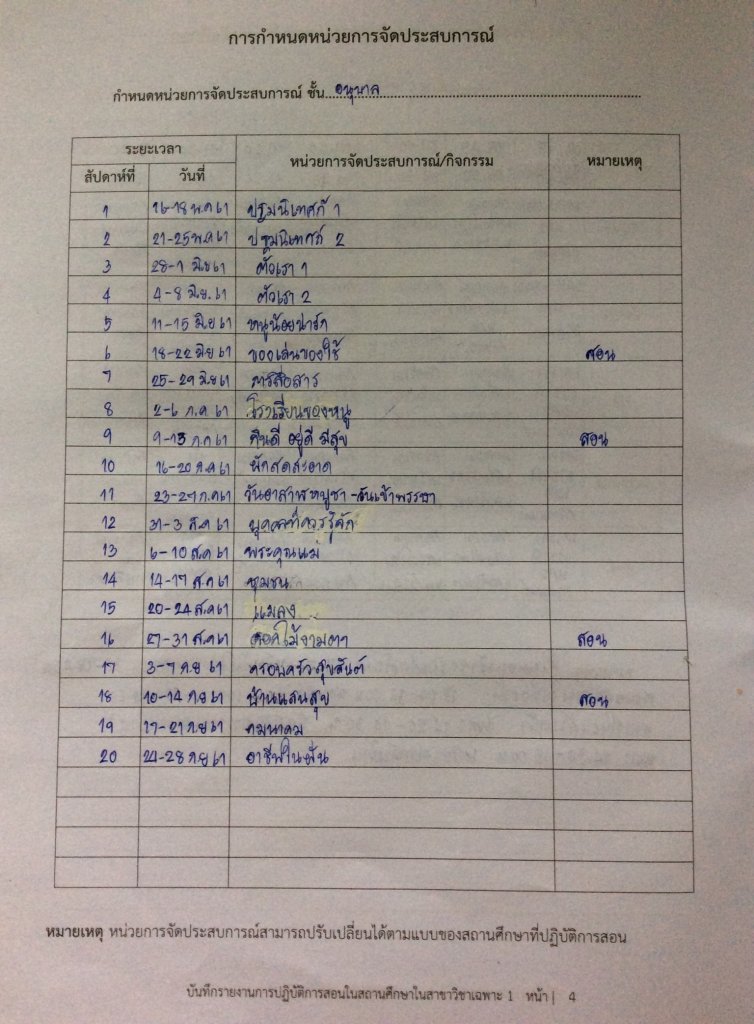 การกำหนดหน่วยการจัดประสบการณ์
กำหนดหน่วยการจัดประสบการณ์ ชั้น อนุบาล
ระยะเวลา หน่วยการจัดประสบการณ์/กิจกรรม หมายเหตุ
สัปดาห์ที่ วันที่
1 16-18 พ.ค 61 ปฐมนิเทศก์ 1
2 21-25 พ.ค 61 ปฐมนิเทศก์ 2
3 28-1 มิ.ย 61 ตัวเรา 1
4 4-8 มิ.ย. 61 ตัวเรา 2
5 11-15 มิ.ย 61 หนูน้อยน่ารัก
6 18-22 มิย 61 ของเล่นของใช้ สอน
7 25-29 มิย 61 การสื่อสาร
8 2-6 ก.ค 61 โรงเรียนของหนู
9 9-13 ก.ค 61 กินดี อยู่ดี มีสุข สอน
10 16-20 ก.ค 61 ผักสดสะอาด
11 23-27 ก.ค 61 วันอาสาฬหบูชา -วันเข้าพรรษา
12 31-3 ส.ค 61 บุคคลที่ควรรู้จัก
13 6-10 ส.ค 61 พระคุณแม่
14 14-17 ส.ค 61 ชุมชน
15 20-24 ส.ค 61 แมลง
16 27-31 ส.ค 61 ดอกไม้งามตา สอน
17 3-7 ก.ย 61 ครอบครัวสุขสันต์
18 10-14 ก.ย 61 บ้านแสนสุข สอน
19 17-21 ก.ย 61 คมนาคม
20 24-28 ก.ย 61 อาชีพในฝัน
หมายเหตุ หน่วยการจัดประสบการณ์สามารถปรับเปลี่ยนได้ตามแบบของสถานศึกษาที่ปฏิบัติการสอน
บันทึกรายงานการปฏิบัติการสอนในสถานศึกษาในสาขาวิชาเฉพาะ 1 หน้า | 4